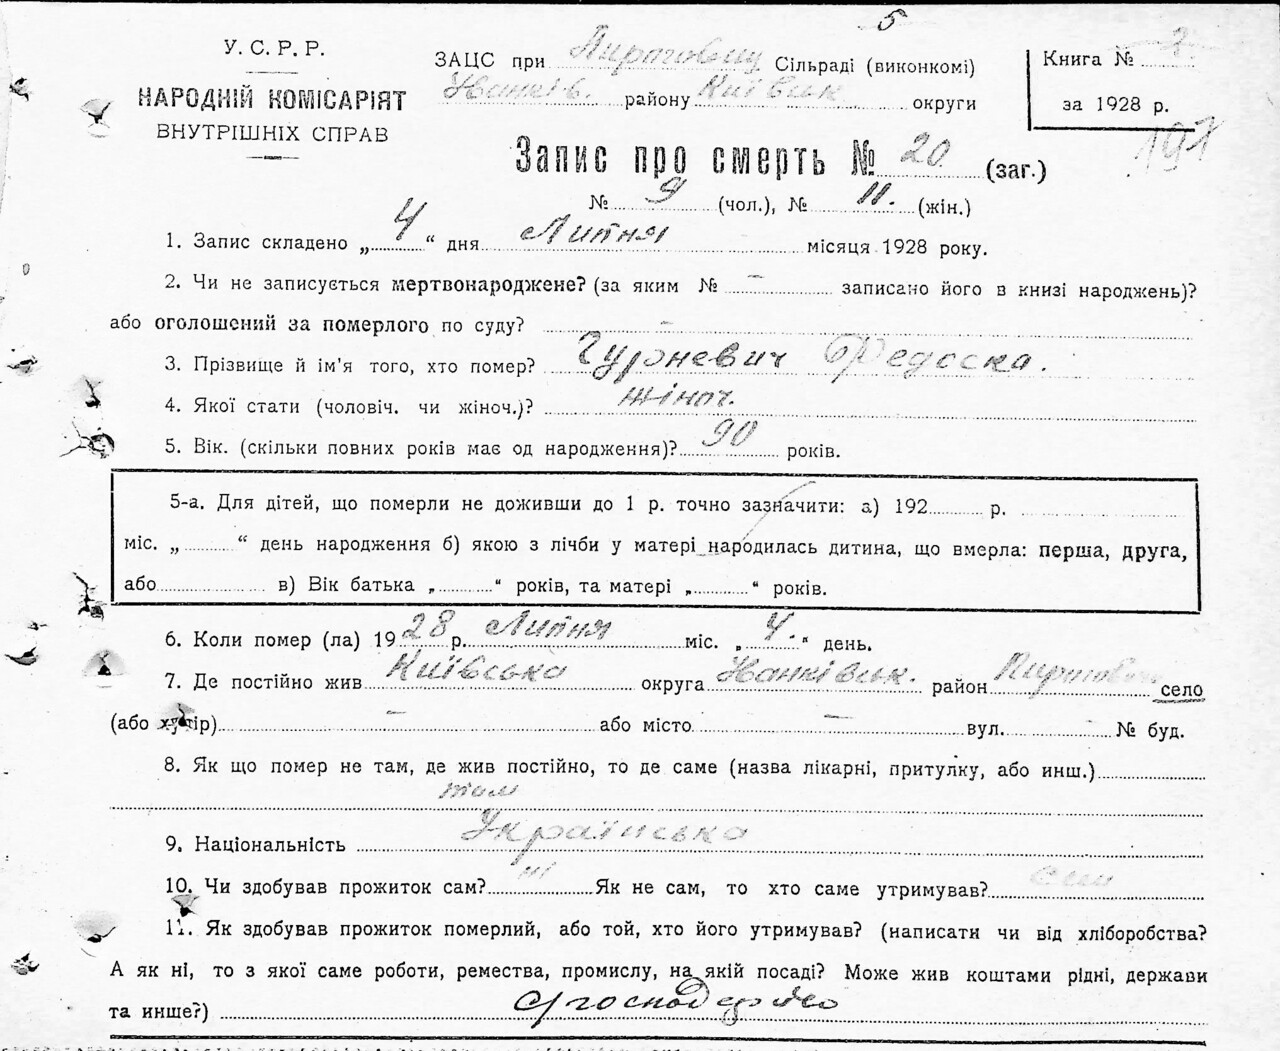 5
У. С. Р. Р.
НАРОДНІЙ КОМІСАРІЯТ
ВНУТРІШНІХ СПРАВ
ЗАЦС при Сільраді (виконкомі)
району Київськ округи
Книга №
за 1928 р.
191
Запис про смерть № 20 (заг.)
№ 9 (чол.), № 11. (жін.)
1. Запис складено „ 4 “ дня Липня місяця 1928 року.
2. Чи не записується мертвонароджене? (за яким № — записано його в книзі народжень)?
або оголошений за померлого по суду? —
3. Прізвище й ім'я того, хто помер? Федоска.
4. Якої стати (чоловіч. чи жіноч.)? жіноч.
5. Вік. (скільки повних років має од народження)? 90 років.
5-а. Для дітей, що померли не доживши до 1 р. точно зазначити: а) 192 р.
міс. „ “ день народження б) якою з лічби у матері народилась дитина, що вмерла: перша, друга,
або в) Вік батька „ “ років, та матері „ “ років.
6. Коли помер (ла) 1928 р. Липня міс. „ 4. “ день.
7. Де постійно жив Київська округа район село
(або хутір) — або місто — вул. — № буд.
8. Як що помер не там, де жив постійно, то де саме (назва лікарні, притулку, або инш.)
там
9. Національність Українська
10. Чи здобував прожиток сам? ні Як не сам, то хто саме утримував? син
11. Як здобував прожиток померлий, або той, хто його утримував? (написати чи від хліборобства?
А як ні, то з якої саме роботи, ремества, промислу, на якій посаді? Може жив коштами рідні, держави
та инше?)